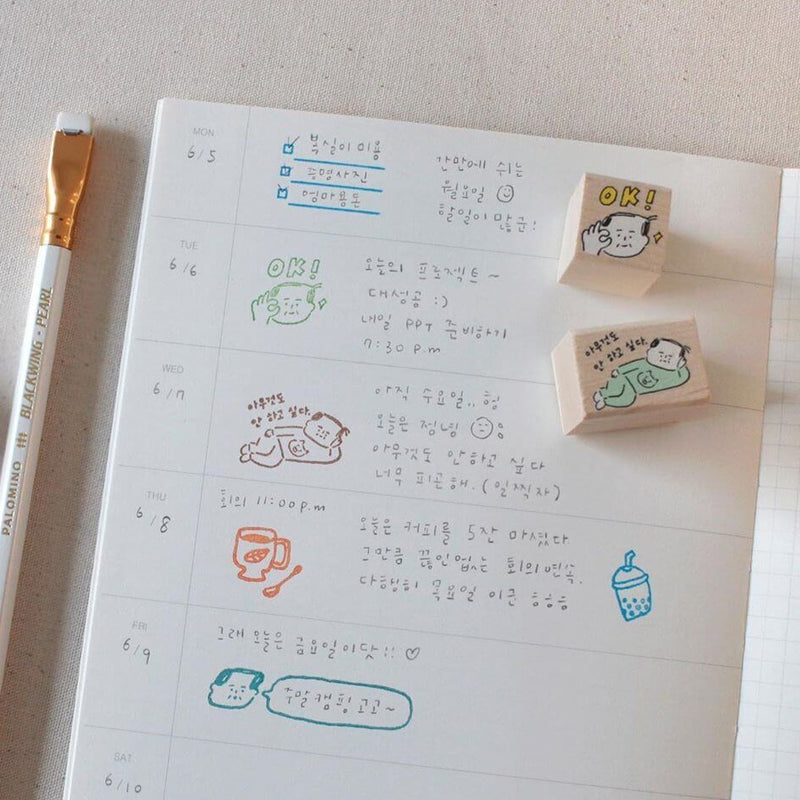 MON
6/5
복실이 미용
증명사진
엄마용돈
간만에 쉬는
월요일
할일이 많군!
OK!
TUE
6/6
OK!
오늘의 프로젝트~
대성공 :)
내일 PPT 준비하기
7:30 p.m
아무것도
안 하고 싶다.
WED
6/7
아무것도
안 하고 싶다.
아직 수요일.. 헝
오늘은 정녕
아무것도 안하고 싶다
너무 피곤해. (일찍자)
THU
6/8
회의 11:00 p.m
오늘은 커피를 5잔 마셨다.
그만큼 끊임없는 회의의 연속.
다행히 목요일 이군 ㅎㅎㅎ
FRI
6/9
그래 오늘은 금요일이닷!! ♡
주말캠핑고고~
SAT
6/10
PALOMINO BLACKWING - PEARL